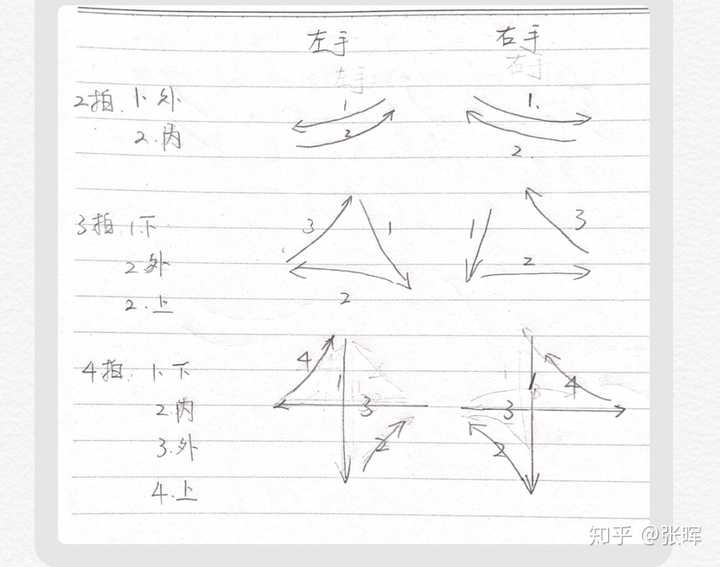 左手 右手
左手 右手
2拍. 1. 外
1 1.
2.内
2 2.
3拍 1.下
3 1 1 3
2外
2 2
2.上
4拍. 1. 下
4 1 1 4
2.内
3 3
3.外
2 2
4.上
知乎 @张晖